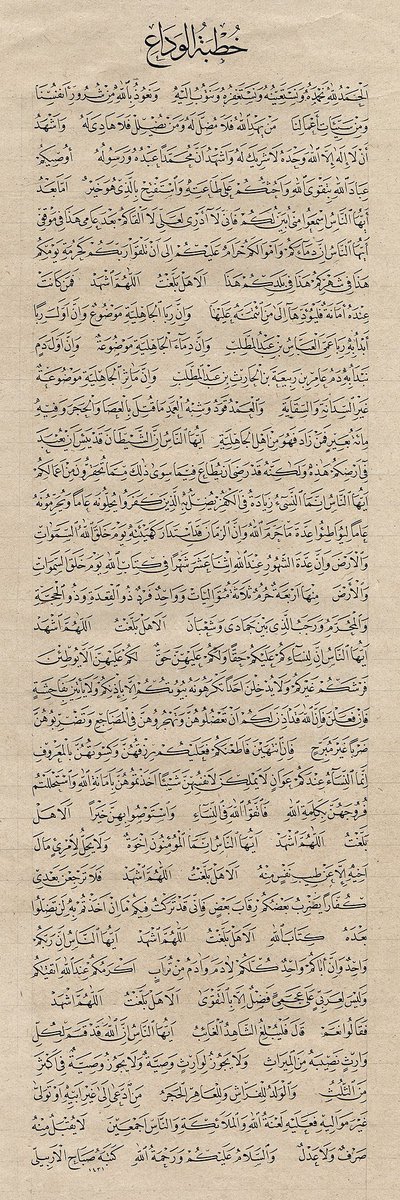 خطبة الوداع
الحمد لله نحمده ونستعينه ونستغفره ونتوب إليه ونعوذ بالله من شرور أنفسنا
ومن سيئات أعمالنا من يهد الله فلا مضل له ومن يضلل فلا هادي له وأشهد
أن لا إله إلا الله وحده لا شريك له وأشهد أن محمدا عبده ورسوله أوصيكم
عباد الله بتقوى الله وأحثكم على طاعته وأستفتح بالذي هو خير أما بعد
أيها الناس اسمعوا مني أبين لكم فإني لا أدري لعلي لا ألقاكم بعد عامي هذا في موقفي
أيها الناس إن دماءكم وأموالكم حرام عليكم إلى أن تلقوا ربكم كحرمة يومكم
هذا في شهركم هذا في بلدكم هذا ألا هل بلغت اللهم اشهد فمن كانت
عنده أمانة فليؤدها إلى من ائتمنه عليها وإن ربا الجاهلية موضوع وإن أول ربا
أبدأ به ربا عمي العباس بن عبد المطلب وإن دماء الجاهلية موضوعة وإن أول دم
نبدأ به دم عامر بن ربيعة بن الحارث بن عبد المطلب وإن مآثر الجاهلية موضوعة
غير السدانة والسقاية والعمد قود وشبه العمد ما قتل بالعصا والحجر وفيه
مائة بعير فمن زاد فهو من أهل الجاهلية أيها الناس إن الشيطان قد يئس أن يعبد
في أرضكم هذه ولكنه قد رضي أن يطاع فيما سوى ذلك مما تحقرون من أعمالكم
أيها الناس إنما النسيء زيادة في الكفر يضل به الذين كفروا يحلونه عاما ويحرمونه
عاما ليواطئوا عدة ما حرم الله وإن الزمان قد استدار كهيئته يوم خلق الله السموات
والأرض وإن عدة الشهور عند الله اثنا عشر شهرا في كتاب الله يوم خلق السموات
والأرض منها أربعة حرم ثلاثة متواليات وواحد فرد ذو القعدة وذو الحجة
والمحرم ورجب الذي بين جمادى وشعبان ألا هل بلغت اللهم اشهد
أيها الناس إن لنسائكم عليكم حقا ولكم عليهن حق لكم عليهن ألا يوطئن
فرشكم غيركم ولا يدخلن أحدا تكرهونه بيوتكم إلا بإذنكم ولا يأتين بفاحشة
فإن فعلن فإن الله قد أذن لكم أن تعضلوهن وتهجروهن في المضاجع وتضربوهن
ضربا غير مبرح فإن انتهين وأطعنكم فعليكم رزقهن وكسوتهن بالمعروف
إنما النساء عندكم عوان لا يملكن لأنفسهن شيئا أخذتموهن بأمانة الله واستحللتم
فروجهن بكلمة الله فاتقوا الله في النساء واستوصوا بهن خيرا ألا هل
بلغت اللهم اشهد أيها الناس إنما المؤمنون إخوة ولا يحل لامرئ مال
أخيه إلا عن طيب نفس منه ألا هل بلغت اللهم اشهد فلا ترجعن بعدي
كفارا يضرب بعضكم رقاب بعض فإني قد تركت فيكم ما إن أخذتم به لن تضلوا
بعده كتاب الله ألا هل بلغت اللهم اشهد أيها الناس إن ربكم
واحد وإن أباكم واحد كلكم لآدم وآدم من تراب أكرمكم عند الله أتقاكم
وليس لعربي على عجمي فضل إلا بالتقوى ألا هل بلغت اللهم اشهد
فقالوا نعم قال فليبلغ الشاهد الغائب أيها الناس إن الله قد قسم لكل
وارث نصيبه من الميراث ولا يجوز لوارث وصية ولا يجوز وصية في أكثر
من الثلث والولد للفراش وللعاهر الحجر من ادعى إلى غير أبيه أو تولى
غير مواليه فعليه لعنة الله والملائكة والناس أجمعين لا يقبل منه
صرف ولا عدل والسلام عليكم ورحمة الله كتبه صباح الأربيلي
١٤٣١